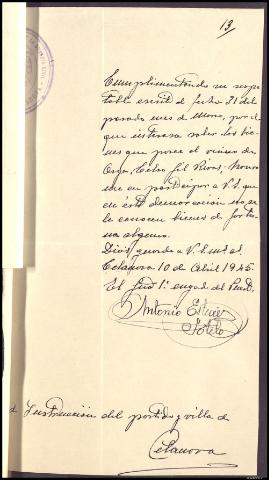 13
Cumplimentando su respe
table escrito de fecha 31 del
pasado mes de Enero, por el
que interesa saber los bie-
nes que posee el vecino de
Celso Gil Rivas,
me en participar a V.S. que
en esta demarcación no se
le conocen bienes de fortu
na alguno.
Dios guarde a V.S. m. a.
Celanova 10 de Abril 1945.
El Gud 1º encgdo del
Antonio Estevez
Sotelo
Instrucción del partido y villa de
Celanova